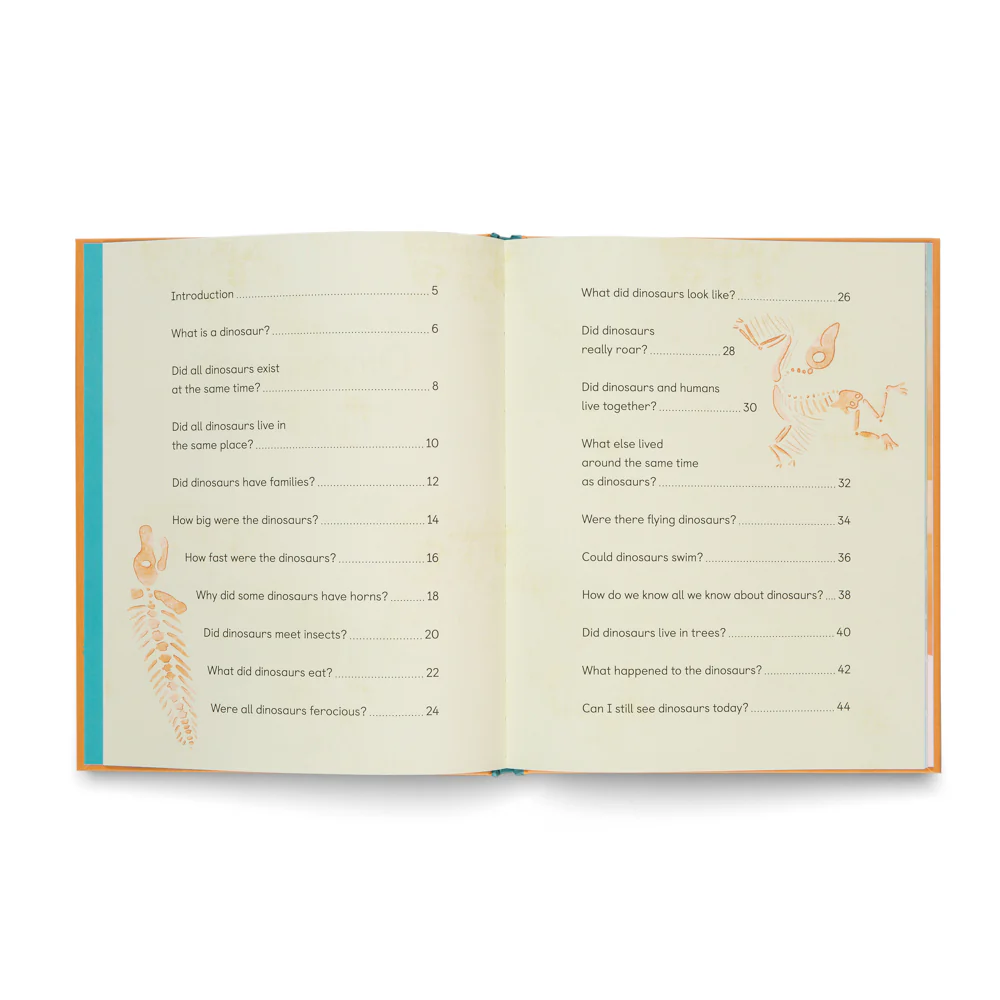 Introduction ........ 5
What is a dinosaur? ........ 6
Did all dinosaurs exist
at the same time? ........ 8
Did all dinosaurs live in
the same place? ........ 10
Did dinosaurs have families? ........ 12
How big were the dinosaurs? ........ 14
How fast were the dinosaurs? ........ 16
Why did some dinosaurs have horns? ........ 18
Did dinosaurs meet insects? ........ 20
What did dinosaurs eat? ........ 22
Were all dinosaurs ferocious? ........ 24
What did dinosaurs look like? ........ 26
Did dinosaurs
really roar? ........ 28
Did dinosaurs and humans
live together? ........ 30
What else lived
around the same time
as dinosaurs? ........ 32
Were there flying dinosaurs? ........ 34
Could dinosaurs swim? ........ 36
How do we know all we know about dinosaurs? ... 38
Did dinosaurs live in trees? ........ 40
What happened to the dinosaurs? ........ 42
Can I still see dinosaurs today? ........ 44